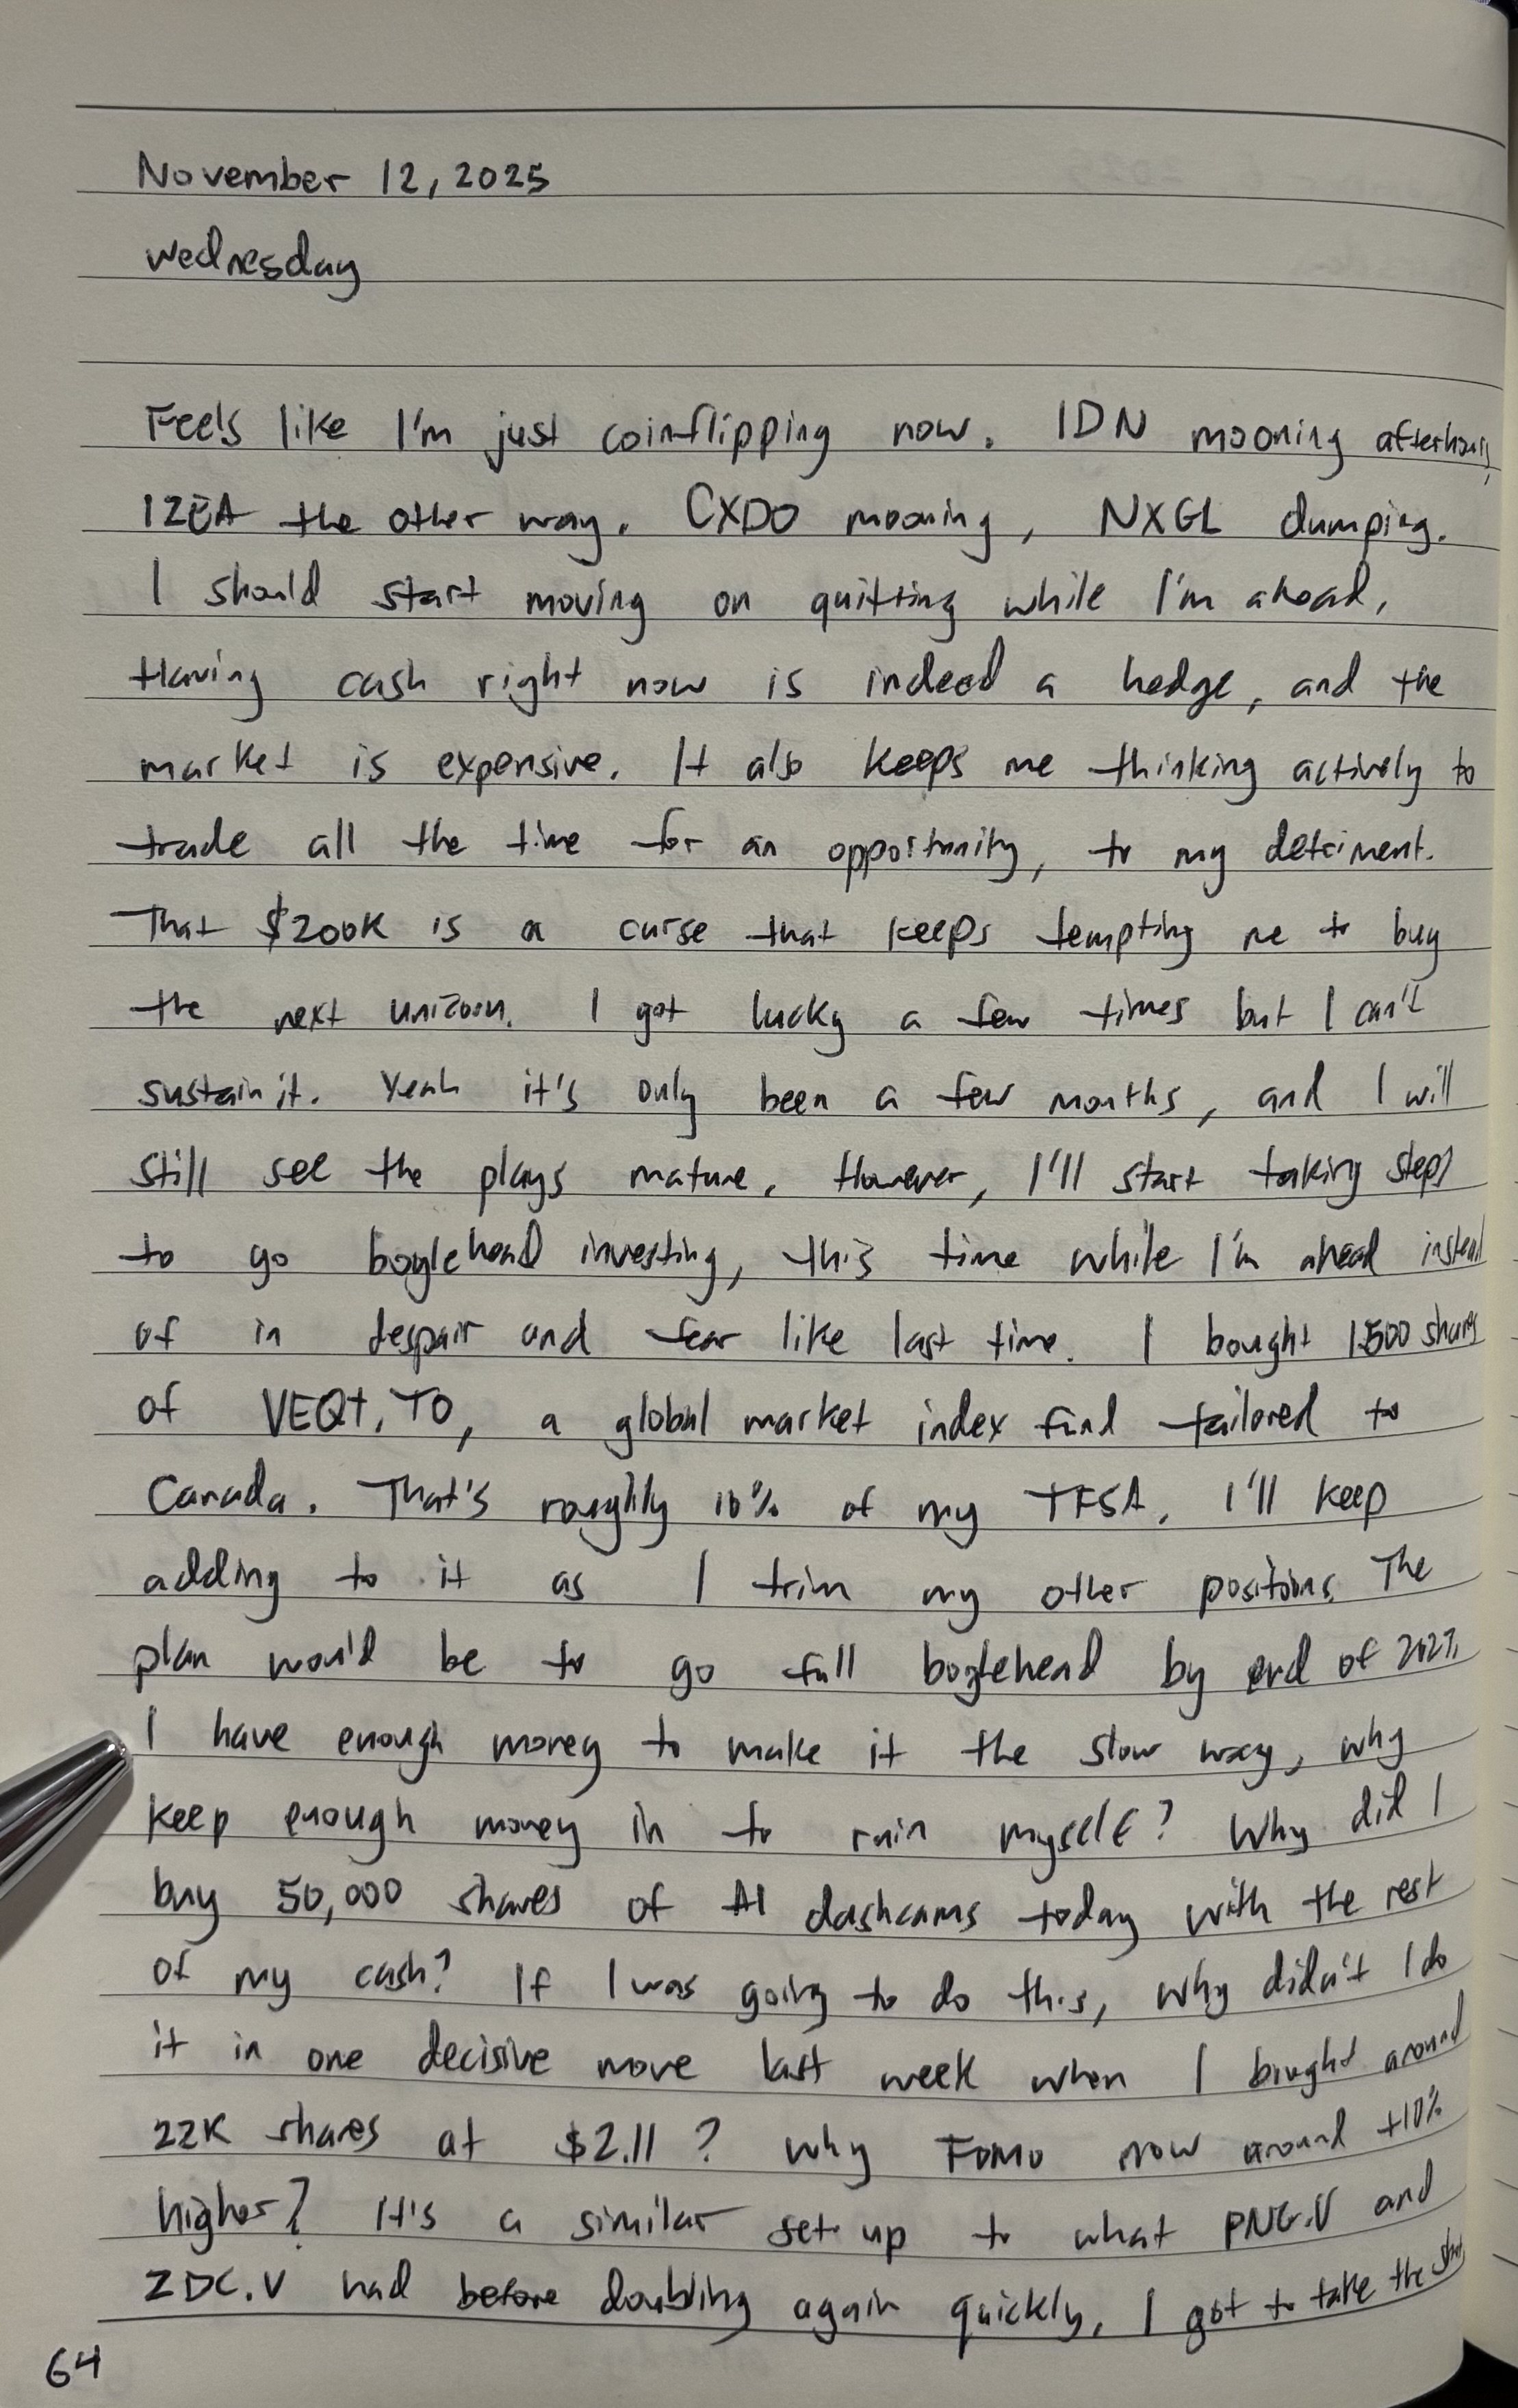 November 12, 2025
Wednesday
Feels like I'm just coinflipping now. IDN mooning afterhours,
IZEA the other way. CXDO mooning, NXGL dumping.
I should start moving on quitting while I'm ahead.
Having cash right now is indeed a hedge, and the
market is expensive. It also keeps me thinking actively to
trade all the time for an opportunity, to my detriment.
That $200K is a curse that keeps tempting me to buy
the next unicorn. I got lucky a few times but I can't
sustain it. Yeah it's only been a few months, and I will
still see the plays mature. However, I'll start taking steps
to go boglehead investing, this time while I'm ahead instead
of in despair and fear like last time. I bought 1500 shares
of VEQT.TO, a global market index fund tailored to
Canada. That's roughly 10% of my TFSA. I'll keep
adding to it as I trim my other positions. The
plan would be to go full boglehead by end of 2027.
I have enough money to make it the slow way, why
keep enough money in to ruin myself? Why did I
buy 50,000 shares of AI dashcams today with the rest
of my cash? If I was going to do this, why didn't I do
it in one decisive move last week when I bought around
22K shares at $2.11? Why FOMO now around +10%
higher? It's a similar set up to what PNG.V and
ZDC.V had before doubling again quickly. I got to take the shot
64